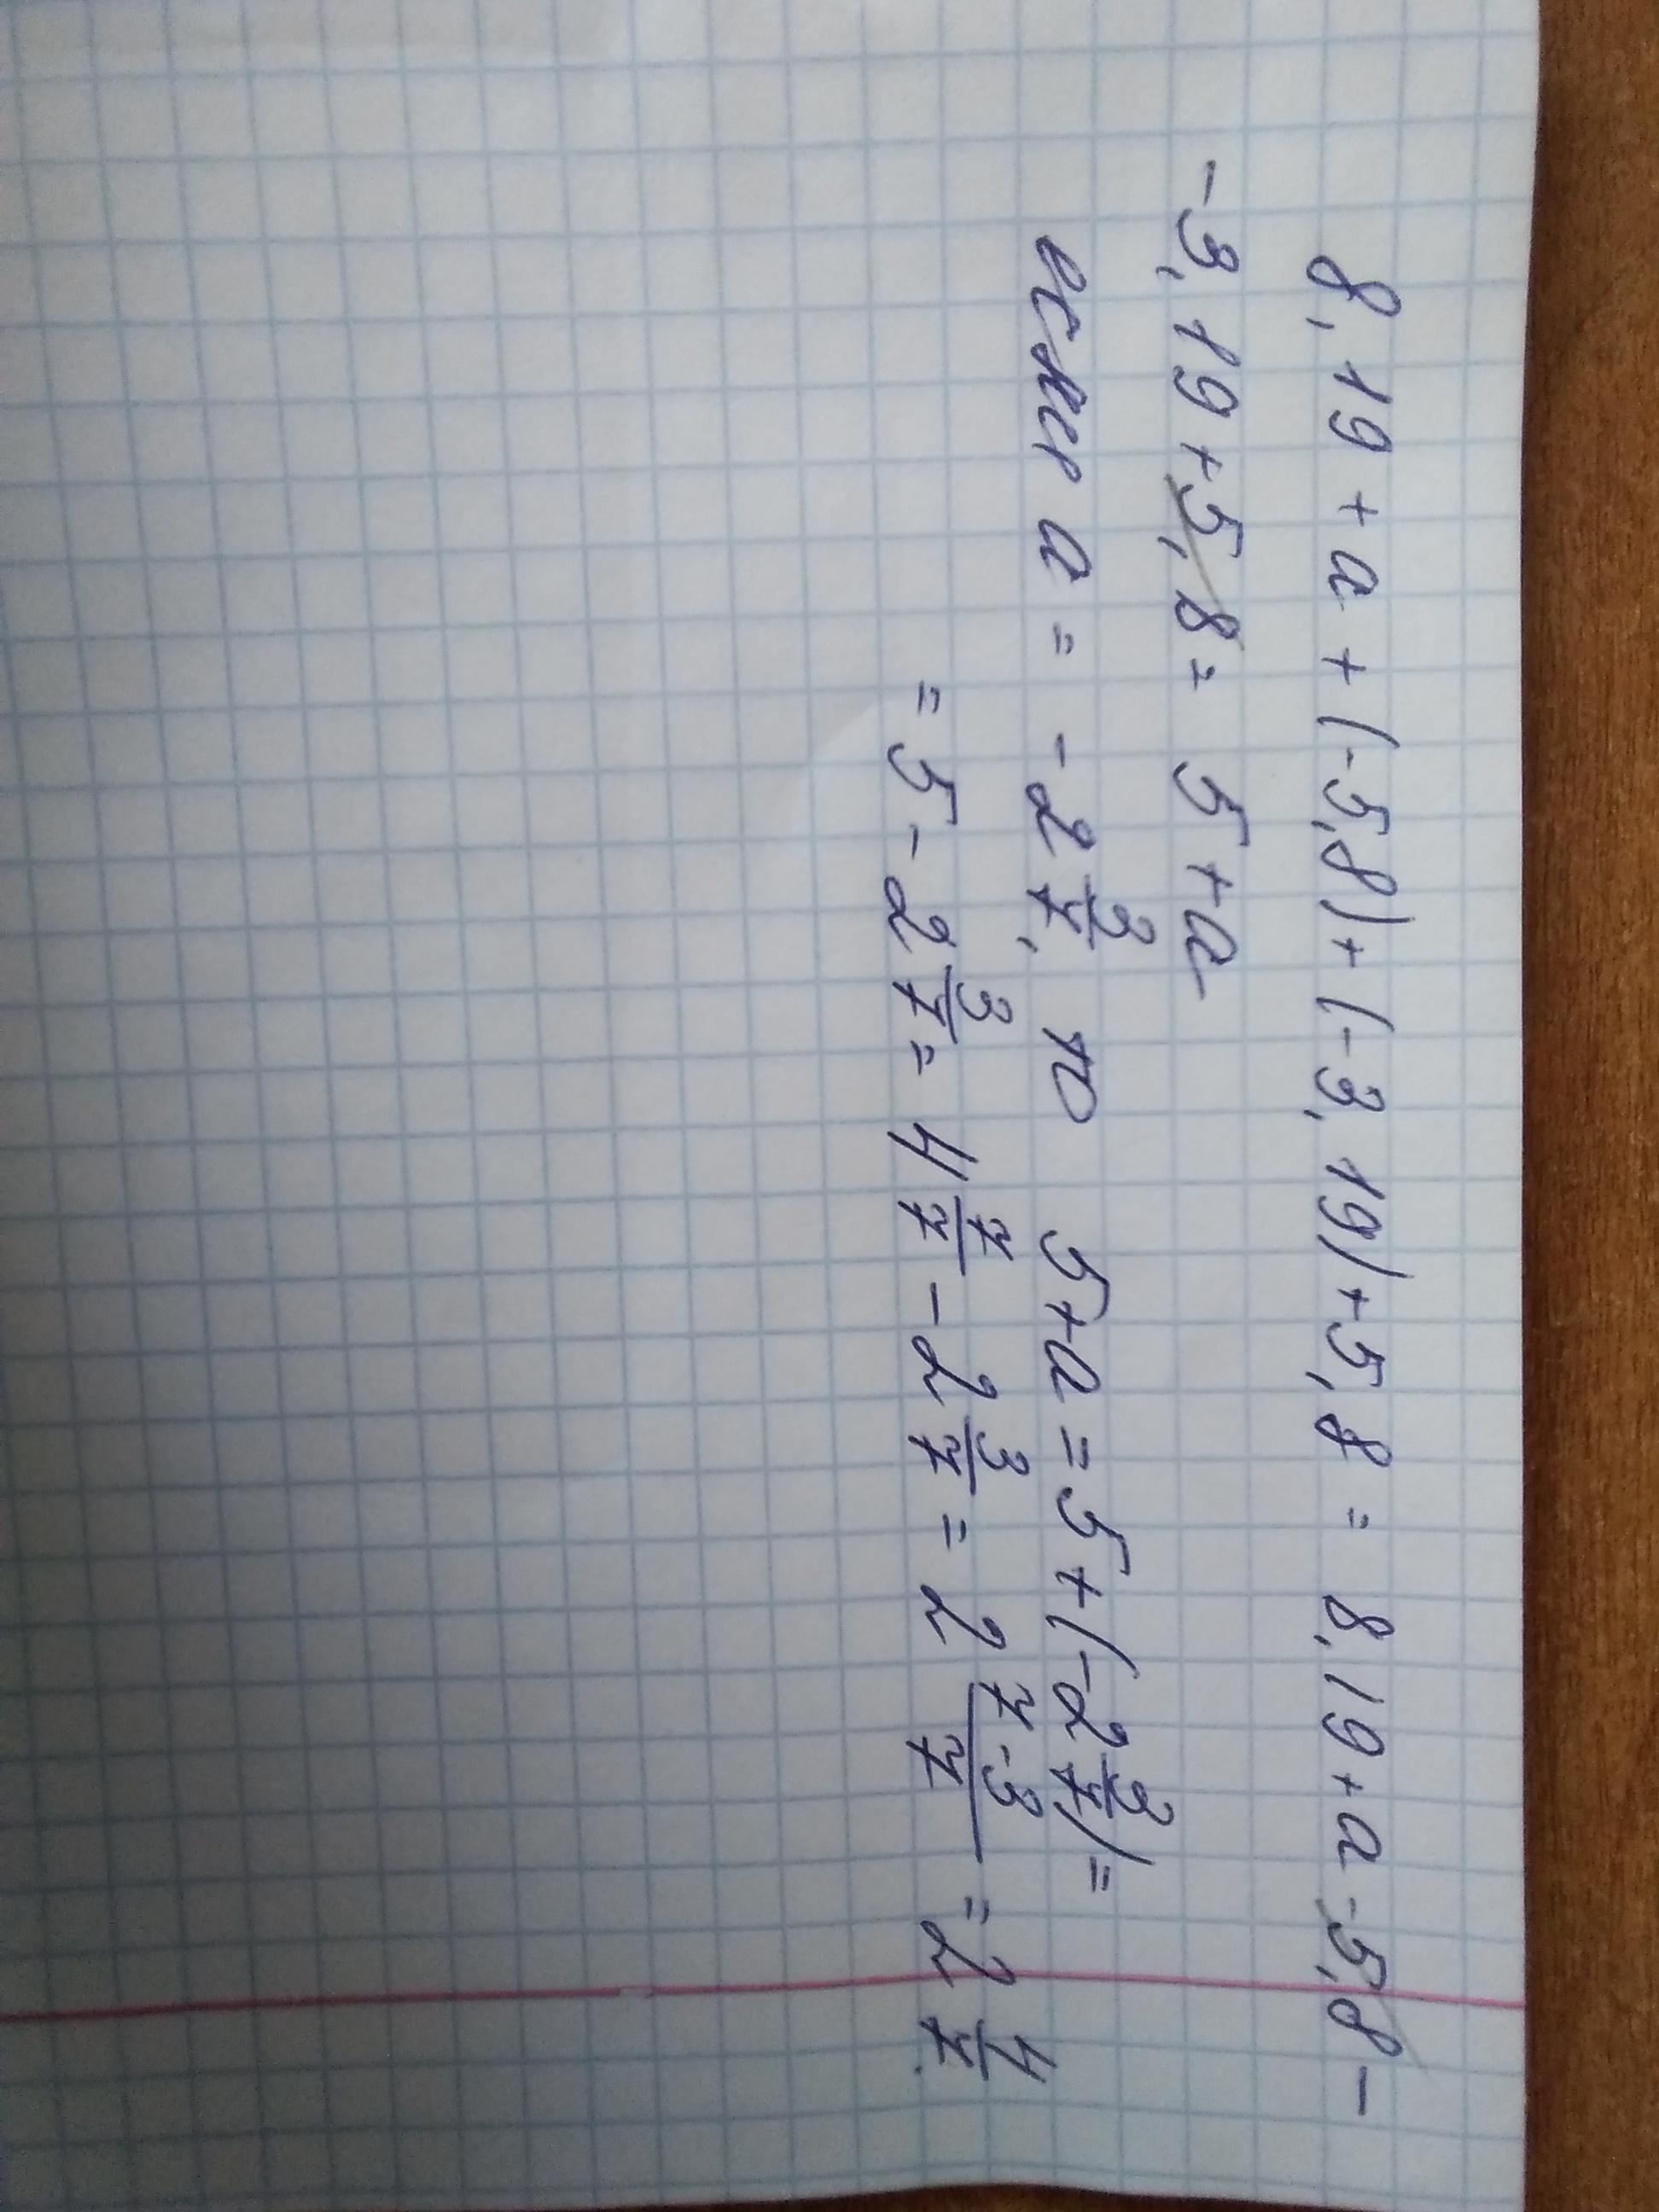 8,19 + a + (-5,8) + (-3,19) + 5,8 = 8,19 + a - 5,8 -
- 3,19 + 5,8 = 5 + a
если a = - 2 3/7, то 5 + a = 5 + (-2 3/7) =
= 5 - 2 3/7 = 4 7/7 - 2 3/7 = 2 7-3/7 = 2 4/7.